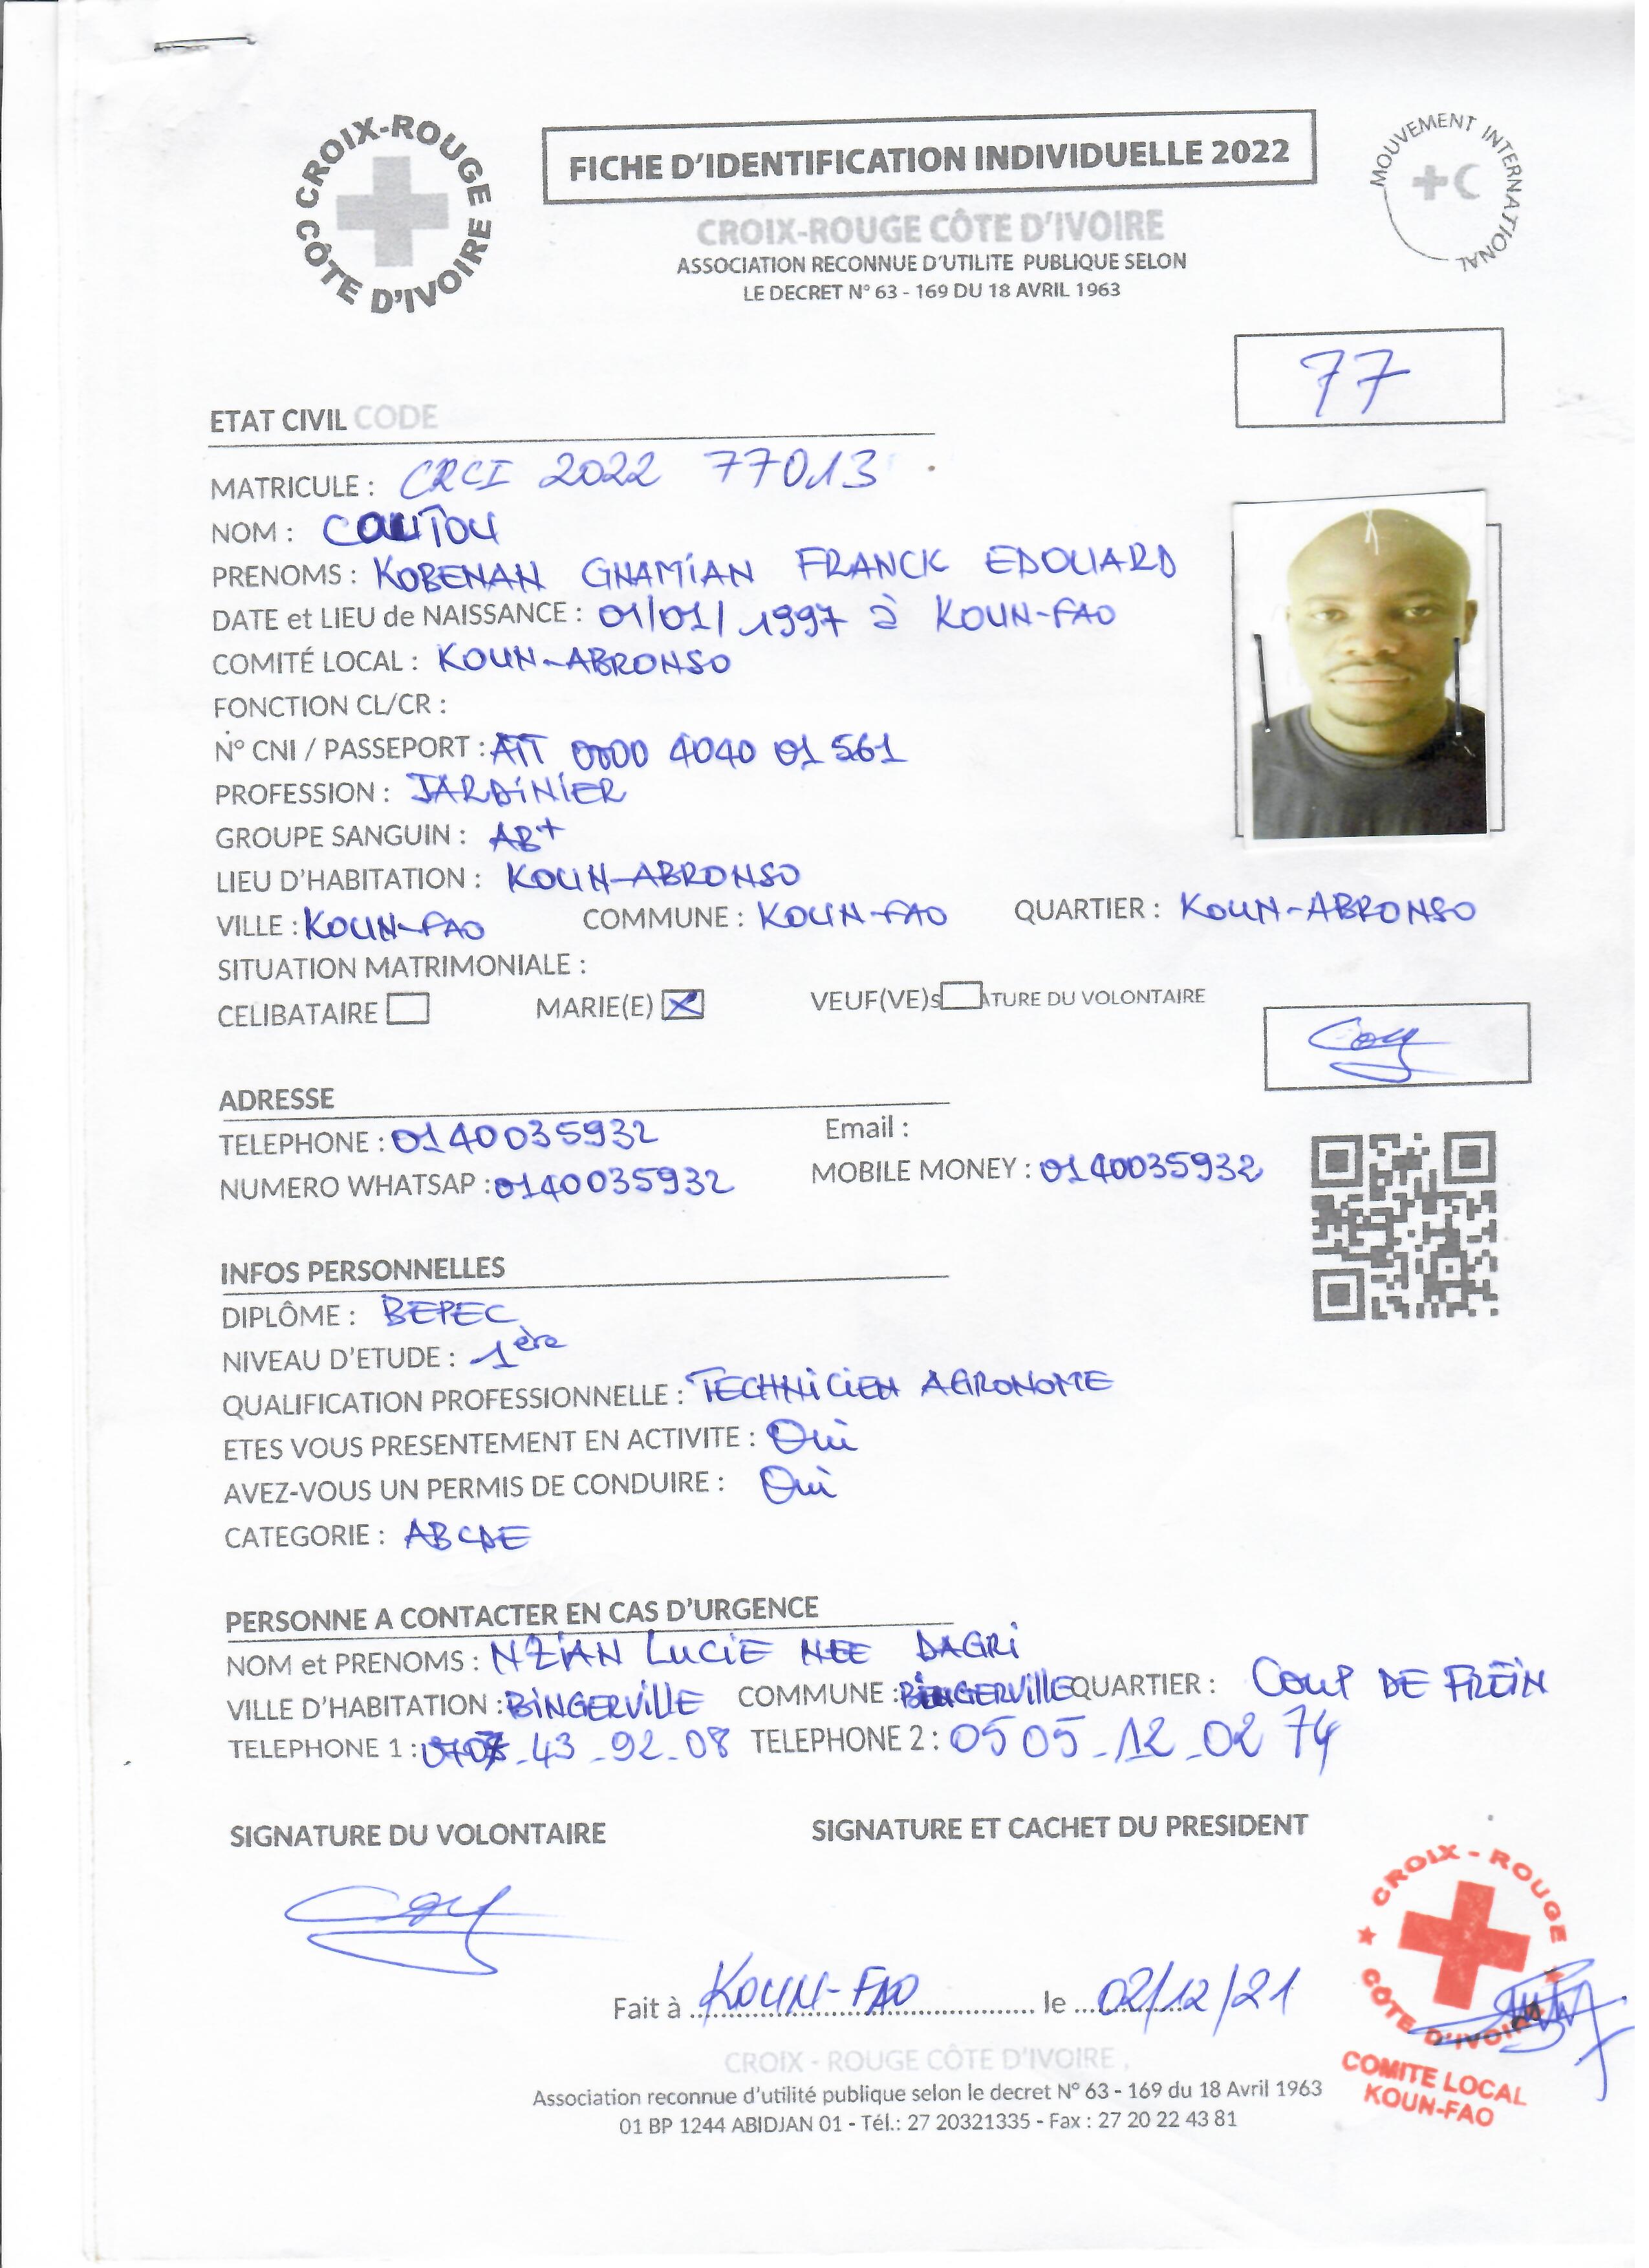 CROIX-ROUGE CÔTE D'IVOIRE
FICHE D'IDENTIFICATION INDIVIDUELLE 2022
MOUVEMENT INTERNATIONAL
CROIX-ROUGE CÔTE D'IVOIRE
ASSOCIATION RECONNUE D'UTILITE PUBLIQUE SELON
LE DECRET N° 63 - 169 DU 18 AVRIL 1963
77
ETAT CIVIL CODE
MATRICULE : CRCI 2022 77013
NOM : COUTOU
PRENOMS : KOBENAN GNAMIAN FRANCK EDOUARD
DATE et LIEU de NAISSANCE : 01/01/1997 à KOUN-FAO
COMITÉ LOCAL : KOUN-ABRONSO
FONCTION CL/CR :
N° CNI / PASSEPORT : ATT 0000 4040 01 561
PROFESSION : JARDINIER
GROUPE SANGUIN : AB+
LIEU D'HABITATION : KOUN-ABRONSO
VILLE : KOUN-FAO COMMUNE : KOUN-FAO QUARTIER : KOUN-ABRONSO
SITUATION MATRIMONIALE :
CELIBATAIRE MARIE(E) X VEUF(VE) S ATURE DU VOLONTAIRE
ADRESSE
TELEPHONE : 0140035932 Email :
NUMERO WHATSAP : 0140035932 MOBILE MONEY : 0140035932
INFOS PERSONNELLES
DIPLÔME : BEPEC
NIVEAU D'ETUDE : 1ère
QUALIFICATION PROFESSIONNELLE : TECHNICIEN AGRONOME
ETES VOUS PRESENTEMENT EN ACTIVITE : Oui
AVEZ-VOUS UN PERMIS DE CONDUIRE : Oui
CATEGORIE : ABCDE
PERSONNE A CONTACTER EN CAS D'URGENCE
NOM et PRENOMS : NZIAN LUCIE NEE DAGRI
VILLE D'HABITATION : BINGERVILLE COMMUNE : BINGERVILLE QUARTIER : COUP DE FREIN
TELEPHONE 1 : 0707-43-92-08 TELEPHONE 2 : 05 05-12-02 74
SIGNATURE DU VOLONTAIRE SIGNATURE ET CACHET DU PRESIDENT
CROIX-ROUGE CÔTE D'IVOIRE
COMITE LOCAL
KOUN-FAO
Fait à KOUN-FAO le 02/12/21
CROIX - ROUGE CÔTE D'IVOIRE,
Association reconnue d'utilité publique selon le decret N° 63 - 169 du 18 Avril 1963
01 BP 1244 ABIDJAN 01 - Tél.: 27 20321335 - Fax : 27 20 22 43 81